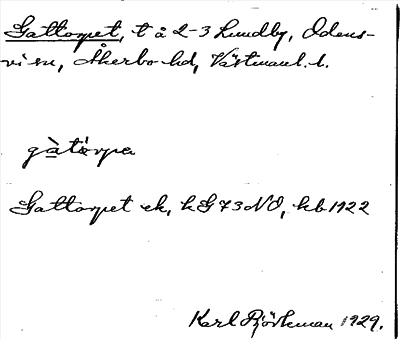 Gattorpet, t å 2-3 Lundby, Odens-
vi sn, Åkerbo hd, Västmanl. l.
gàtòrpa
Gattorpet ek, kG 73 NO, hb 1922
Karl Björkman 1929.